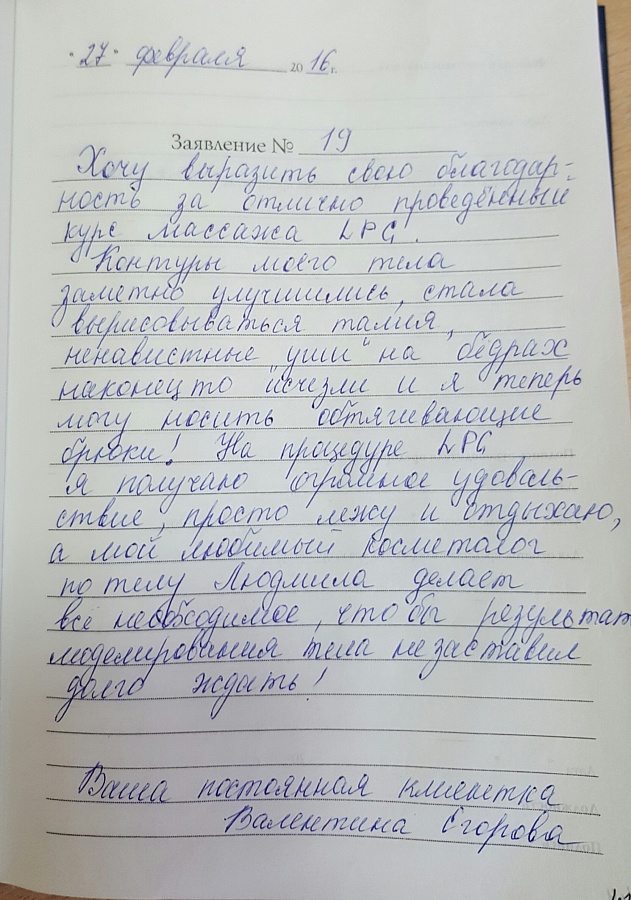 "27" февраля 2016 г.
Заявление № 19
Хочу выразить свою благодар-
ность за отлично проведённый
курс массажа LPG.
Контуры моего тела
заметно улучшились, стала
вырисовываться талия,
ненавистные "уши" на бёдрах
наконец то исчезли и я теперь
могу носить обтягивающие
брюки! На процедуре LPG
я получаю огромное удоволь-
ствие, просто лежу и отдыхаю,
а мой любимый косметалог
по телу Людмила делает
все необходимое, что бы результат
моделирования тела не заставил
долго ждать!
Ваша постоянная клиентка
Валентина Егорова